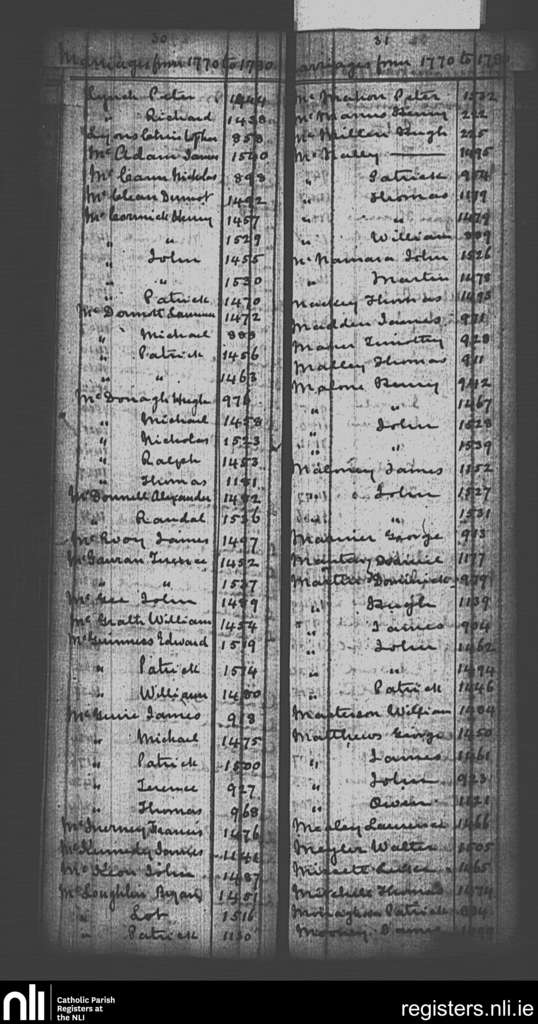 30
Marriages from 1770 to 1780
Lynch Peter 1444
" Richard 1438
Lyons Christopher 858
McAdam James 1540
McCann Nicholas 898
McClean Dermot 1492
McCormick Henry 1457
" " 1529
" John 1455
" " 1530
" Patrick 1470
McDermott Laurence 1472
" Michael 888
" Patrick 1456
" " 1463
McDonagh Hugh 976
" Michael 1458
" Nicholas 1523
" Ralph 1453
" Thomas 1181
McDonnell Alexander 1482
" Randal 1536
McEvoy James 1497
McGauran Terence 1452
" " 1537
McGee John 1489
McGrath William 1454
McGuinness Edward 1519
" Patrick 1574
" William 1480
McGuire James 918
" Michael 1475
" Patrick 1500
" Terence 927
" Thomas 968
McInerney Francis 1476
McKennedy James
McKeon John 1487
McLoughlin Bryan 1451
" Lot 1516
" Patrick 1130
31
Marriages from 1770 to 1780
McMahon Peter 1532
McManus Henry 222
McMillen Hugh 225
McNalley —— 1495
" Patrick 954
" Thomas 1179
" " 1479
" William 889
McNamara John 1526
" Martin 1478
Mackey Thomas 1495
Madden James 931
Maher Timothy 928
Malley Thomas 911
Malone Henry 942
" " 1467
" John 1528
" " 1539
Maloney James 1152
" John 1527
" " 1531
Manner George 913
1177
Martin Dominick 979
" Hugh 1139
" James 904
" John 1462
" " 1494
" Patrick 1446
Masterson William 1484
Matthews George 1450
" James 1461
" John 923
" Owen 1121
Mealey Laurence 1466
Meyler Walter 1505
1465
Mitchell Thomas 1474
Monaghan Patrick 894
Mooney James
nli
Catholic Parish
Registers at
the NLI
registers.nli.ie